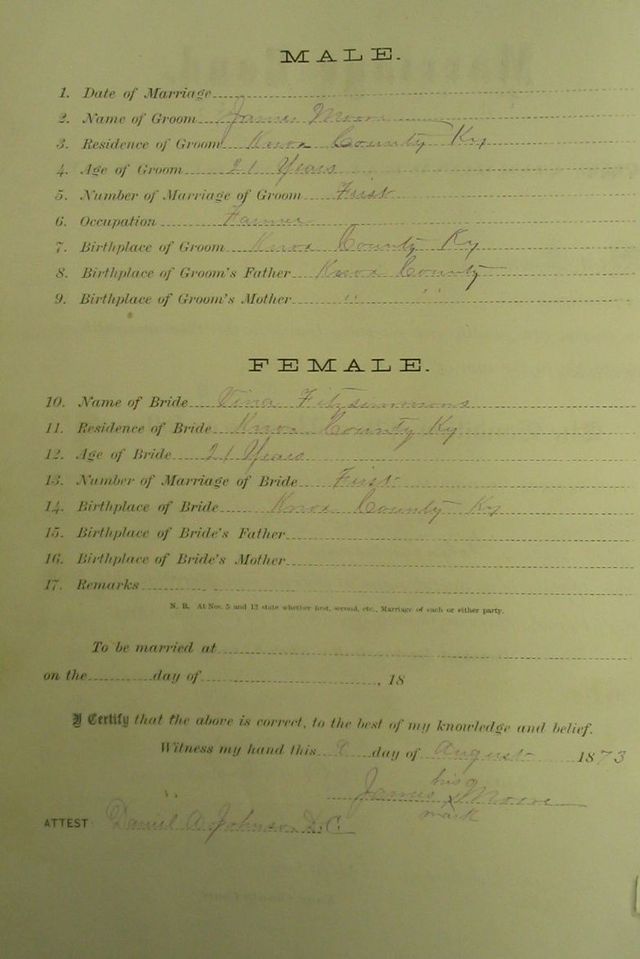 MALE.
1. Date of Marriage
2. Name of Groom James Moore
3. Residence of Groom Knox County Ky
4. Age of Groom 21 Years
5. Number of Marriage of Groom First
6. Occupation Farmer
7. Birthplace of Groom Knox County Ky
8. Birthplace of Groom's Father Knox County
9. Birthplace of Groom's Mother " "
FEMALE.
10. Name of Bride Vina Fitzsimmons
11. Residence of Bride Knox County Ky
12. Age of Bride 21 Years
13. Number of Marriage of Bride First
14. Birthplace of Bride Knox County Ky
15. Birthplace of Bride's Father
16. Birthplace of Bride's Mother
17. Remarks
N. B. At Nos. 5 and 13 state whether first, second, etc., Marriage of each or either party.
To be married at
on the day of , 18
I Certify that the above is correct, to the best of my knowledge and belief.
Witness my hand this 8 day of August 1873
his
James x Moore
mark
ATTEST Daniel A Johnson D.C.